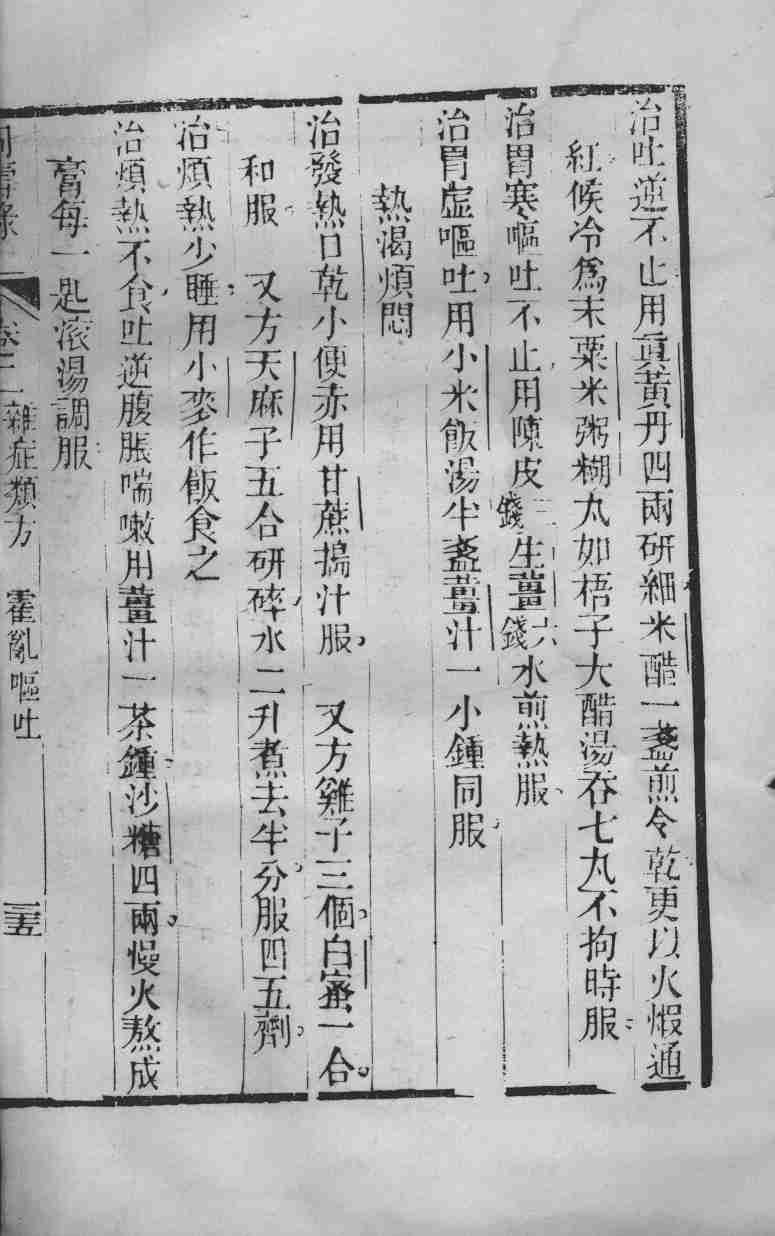 治吐逆不止用眞黃丹四兩研細米醋一盞煎令乾更以火煆通
紅候冷爲末粟米粥糊丸如梧子大醋湯吞七丸不拘時服
治胃寒嘔吐不止用陳皮三錢生薑六錢水煎熱服
治胃虛嘔吐用小米飯湯半盞薑汁一小鍾同服
熱渴煩悶
治發熱口乾小便赤用甘蔗搗汁服 又方雞子三個白蜜一合
和服 又方天麻子五合研碎水二升煮去半分服四五劑
治煩熱少睡用小麥作飯食之
治煩熱不食吐逆腹脹喘嗽用薑汁一茶鍾沙糖四兩慢火熬成
膏每一匙滚湯調服
卷二 雜症類方 霍亂嘔吐 三五